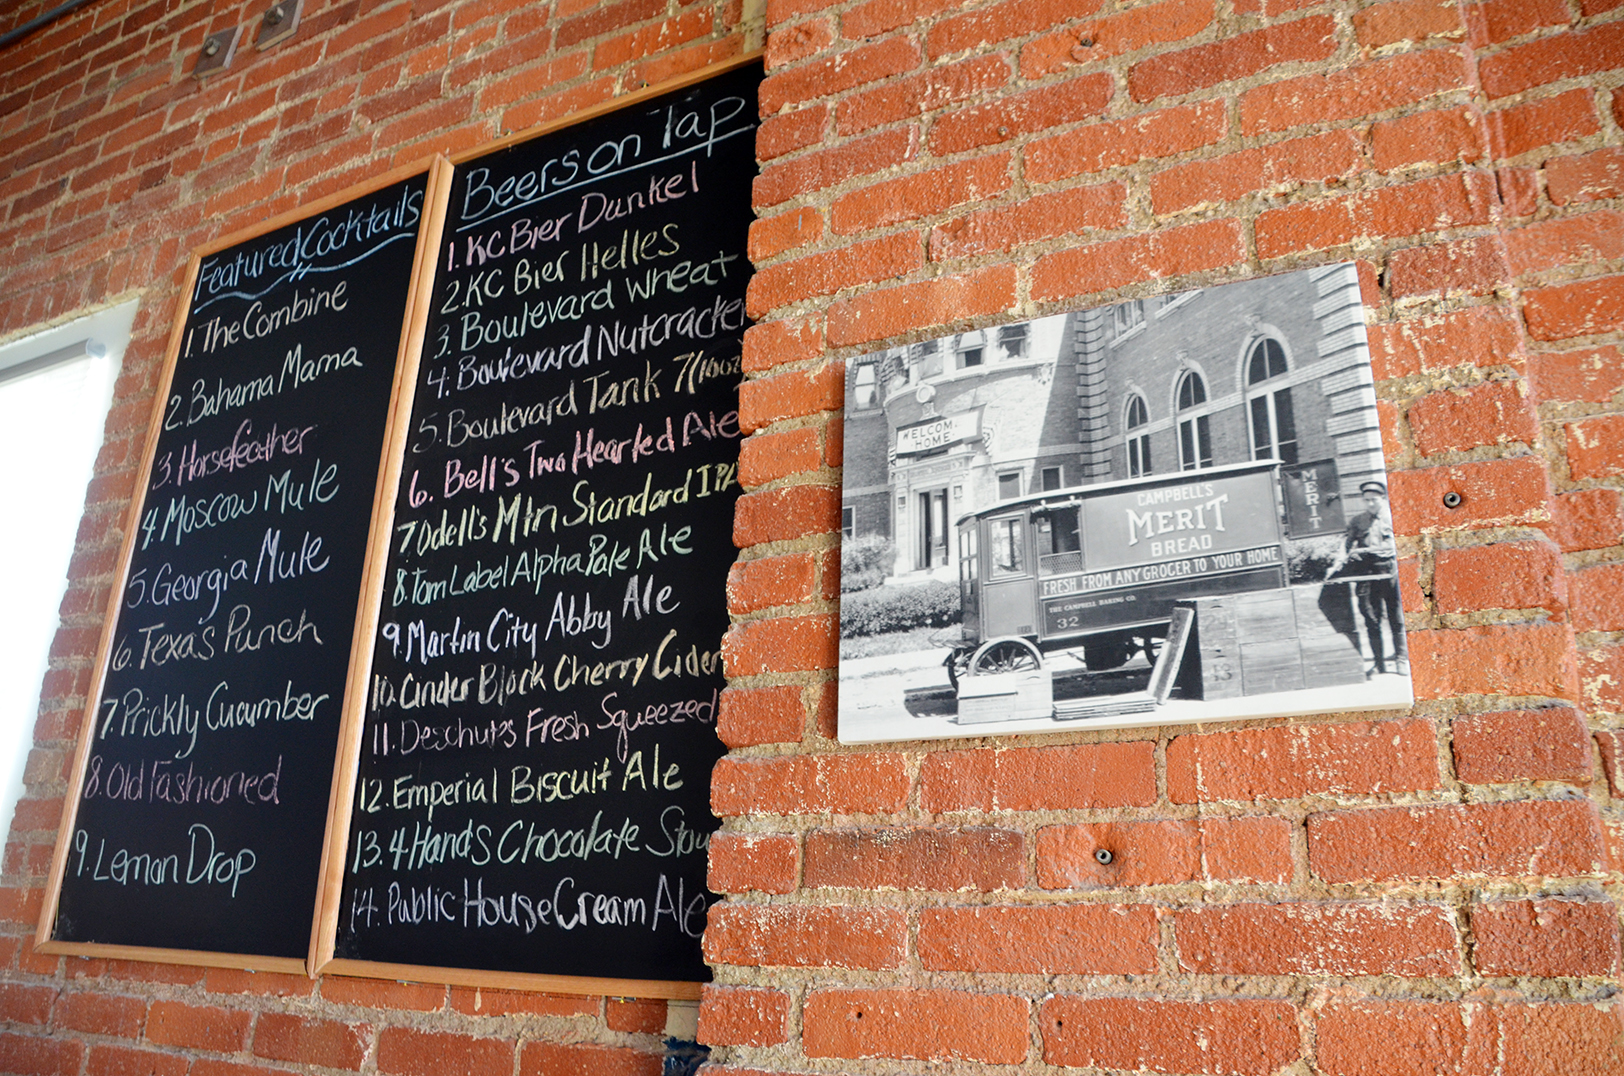 Featured Cocktails
1. The Combine
2. Bahama Mama
3. Horsefeather
4. Moscow Mule
5. Georgia Mule
6. Texas Punch
7. Prickly Cucumber
8. Old Fashioned
9. Lemon Drop
Beers on Tap
1. KC Bier Dunkel
2. KC Bier Helles
3. Boulevard Wheat
4. Boulevard Nutcracker
5. Boulevard Tank 7 (10oz
6. Bell's Two Hearted Ale
7. Odell's Mtn Standard
8. Tom Label Alpha Pale Ale
9. Martin City Abby Ale
10. Cinder Block Cherry Cider
11. Deschut's Fresh Squeezed
12. Emperial Biscuit Ale
13. 4 Hands Chocolate Stou
14. Public House Cream Ale
WELCOME
HOME
CAMPBELL'S
MERIT
BREAD
FRESH FROM ANY GROCER TO YOUR HOME
THE CAMPBELL BAKING CO.
32
MERIT
13